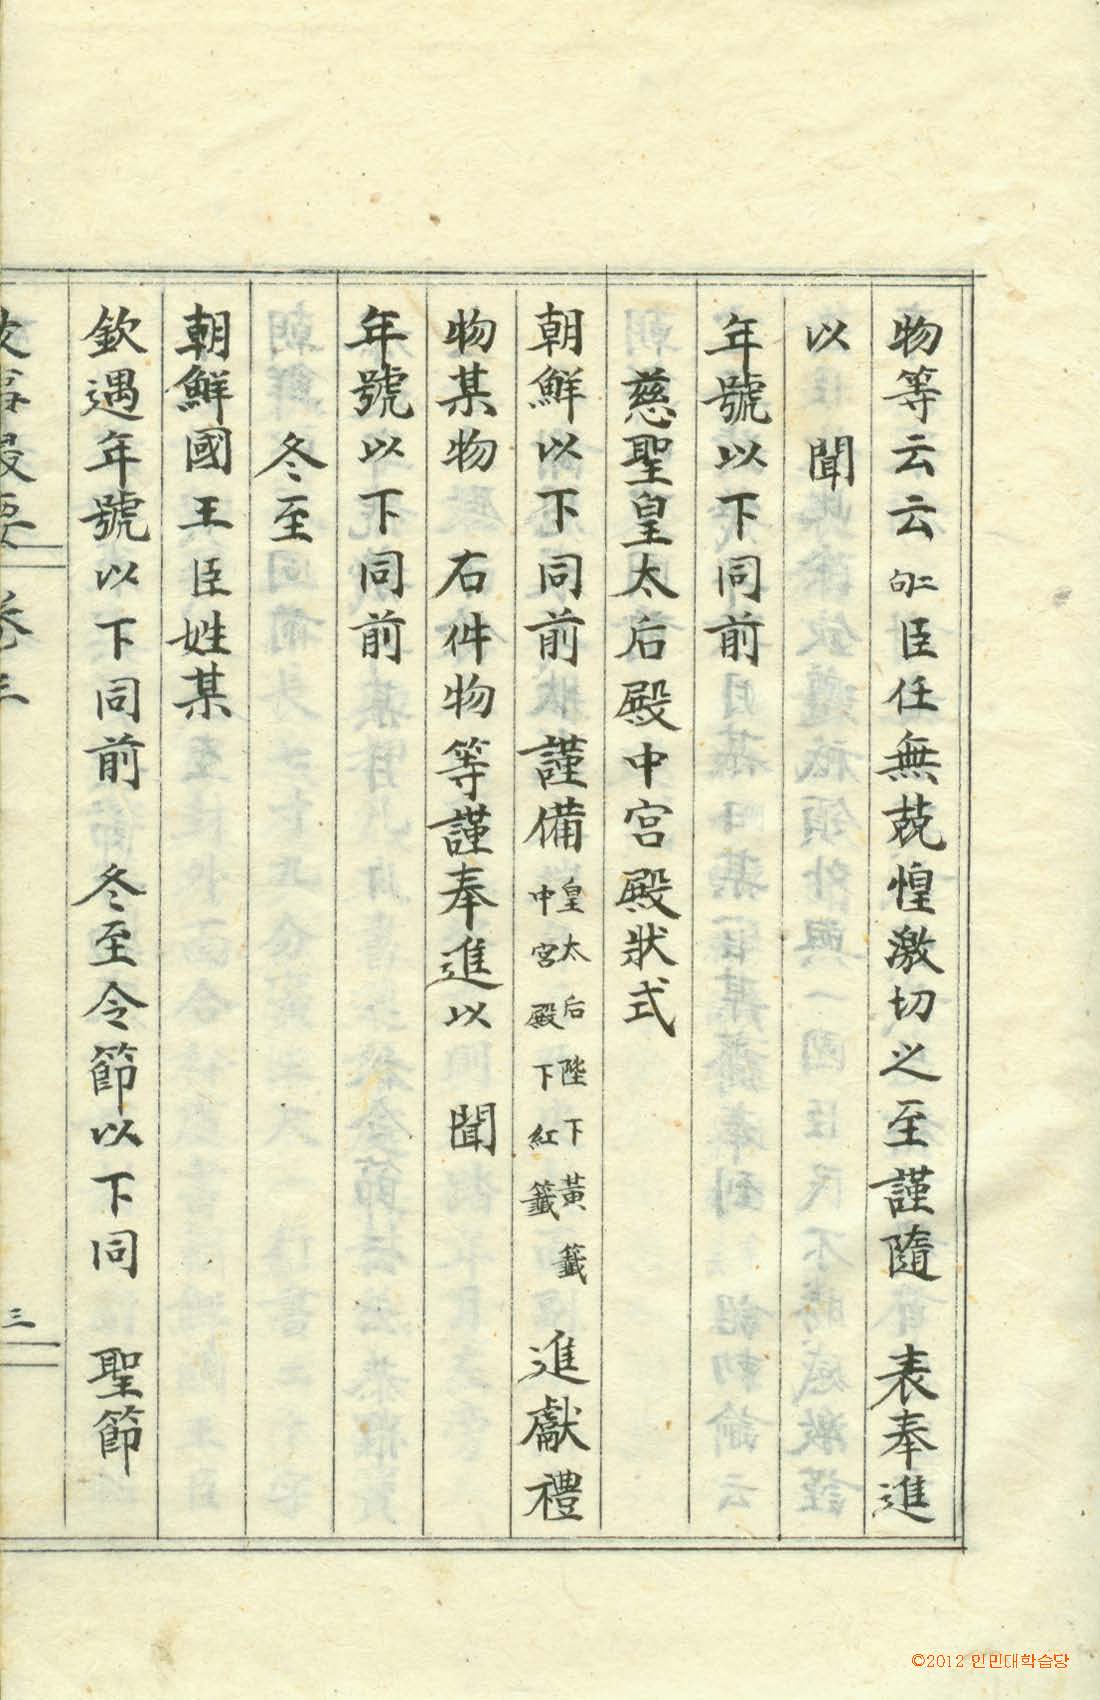 物等云云二句臣任無兢惶激切之至謹隨 表奉進
以 聞
年號以下同前
慈聖皇太后殿中宮殿狀式
朝鮮以下同前謹備皇太后陛下黃籤中宮殿下紅籤 進獻禮
物某物 右件物等謹奉進以 聞
年號以下同前
冬至
朝鮮國王臣姓某
欽遇年號以下同前 冬至令節以下同 聖節
事最要 卷三
三
©2012 인민대학습당